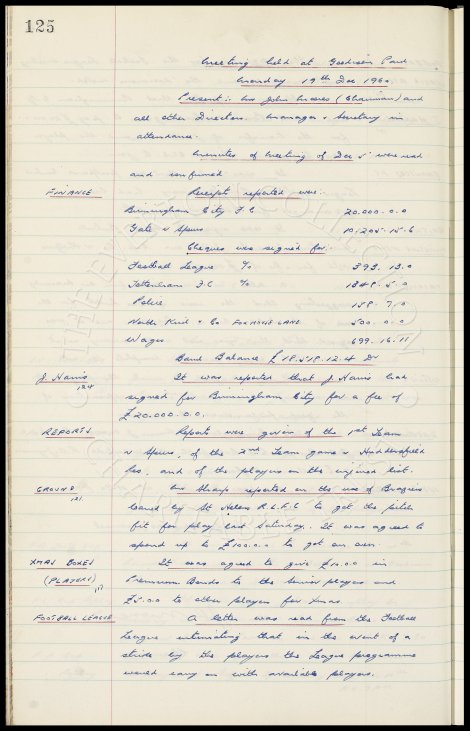 125
Meeting held at Goodison Park
Monday 19th Dec 1960.
Present:- Mr John Moores (Chairman) and
all other Directors. Manager & Secretary in
attendance.
Minutes of Meeting of Dec 5th were read
and confirmed
FINANCE Receipts reported were:
Birmingham City F.C. 20.000.0.0
Gate v Spurs 10,205.15.6
Cheques were signed for:
Football League % 393.13.0
Tottenham F.C. % 1848.5.0
Police 158.7.0
North Kird & Co 500.0.0
Wages 699.16.11
Bank Balance £18.518.12.4 Dr
J. Harris 124 It was reported that J Harris had
signed for Birmingham City for a fee of
£20.000.0.0.
REPORTS Reports were given of the 1st Team
v Spurs, of the 2nd Team game v Huddersfield
Res, and of the players on the injured list.
GROUND 121 Mr Sharp reported on the use of Braziers
loaned by St Helens R.L.F.C to get the pitch
fit for play last Saturday. It was agreed to
spend up to £100.0.0 to get our own.
XMAS BOXES It was agreed to give £10.0.0 in
(PLAYERS) Premium Bonds to the Senior players and
£5.0.0 to other players for Xmas.
FOOTBALL LEAGUE A letter was read from the Football
League intimating that in the event of a
strike by the players the League programme
would carry on with available players.